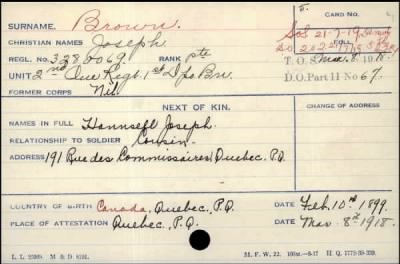 SURNAME. Brown. CARD NO.
CHRISTIAN NAMES Joseph. SOS 21-7-19
REGL. NO. 3280069. RANK pte FOLL.
UNIT 2nd Que Regt. 1st Dpo Bn. T.O.S. Mar. 8. 1918.
D.O. Part II No 67.
FORMER CORPS Nil.
NEXT OF KIN. CHANGE OF ADDRESS
NAMES IN FULL Joseph.
RELATIONSHIP TO SOLDIER Cousin.
ADDRESS 191 Rue des Commissaires, Quebec. P.Q.
COUNTRY OF BIRTH Canada, Quebec, P.Q. DATE Feb. 10th 1899.
PLACE OF ATTESTATION Quebec, P.Q. DATE Mar. 8th 1918.
M. F. W. 22.